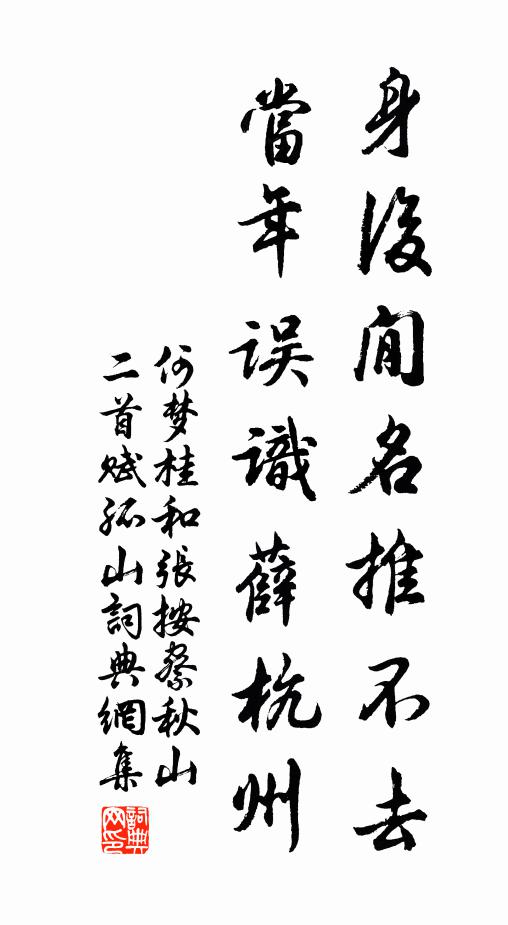 身後閒名推不去
當年誤識薛杭州
何梦桂和張按察秋山
二首賦孤山詞典網集
詞典网印